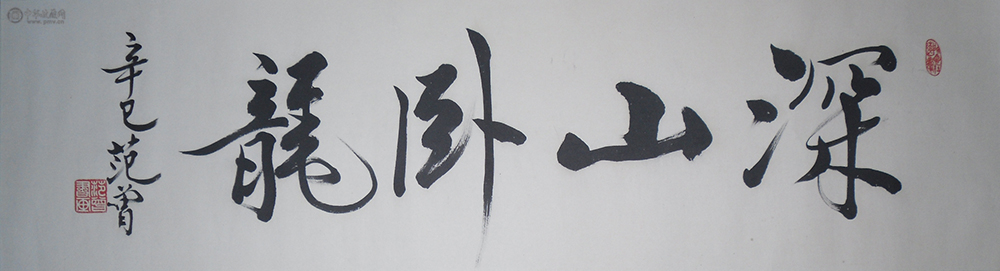 深山卧龍
辛巳范曾